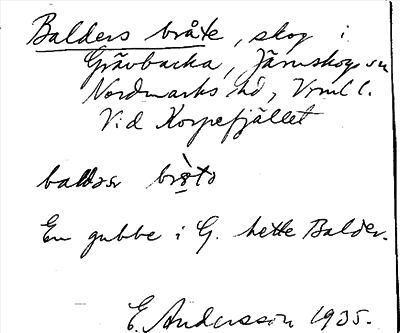 Balders bråte, skog i
Grävbacka, Järnskogs sn
Nordmarks hd, Vrml l.
Vid Korpefjället
baldər brò̲tə
En gubbe i G. hette Balder.
E. Andersson 1935.